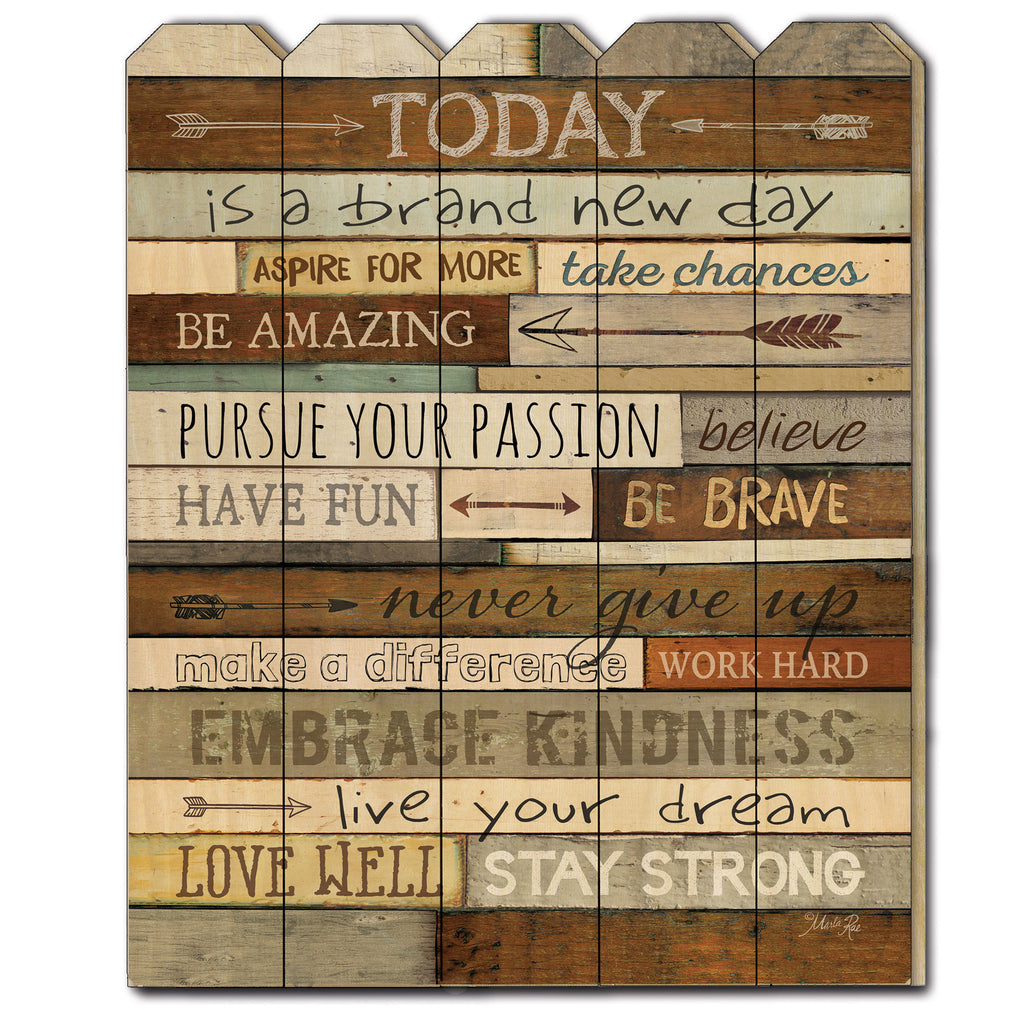 TODAY
is a brand new day
ASPIRE FOR MORE take chances
BE AMAZING
PURSUE YOUR PASSION believe
HAVE FUN BE BRAVE
never give up
make a difference WORK HARD
EMBRACE KINDNESS
live your dream
LOVE WELL STAY STRONG
©Marla Rae